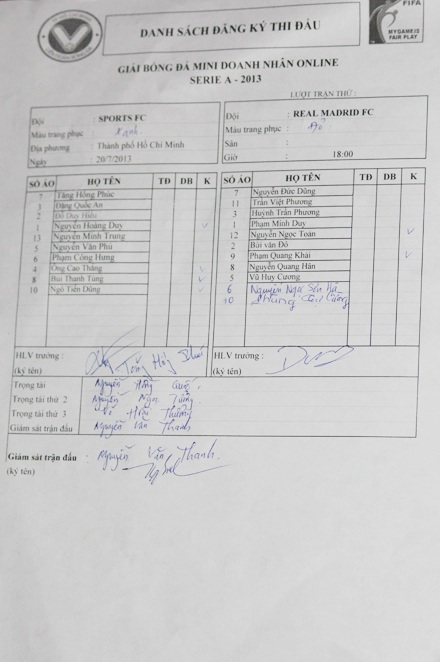 FIFA
MY GAME IS
FAIR PLAY
DANH SÁCH ĐĂNG KÝ THI ĐẤU
GIẢI BÓNG ĐÁ MINI DOANH NHÂN ONLINE
SERIE A - 2013
LƯỢT TRẬN THỨ :
Đội : SPORTS FC
Màu trang phục : Xanh
Địa phương : Thành phố Hồ Chí Minh
Ngày : 20/7/2013
Đội : REAL MADRID FC
Màu trang phục : Đỏ
Sân :
Giờ : 18:00
SỐ ÁO HỌ TÊN TĐ DB K
7 Tăng Hồng Phúc
3 Đặng Quốc An
2 Đỗ Duy Hiếu
1 Nguyễn Hoàng Duy
13 Nguyễn Minh Trung
5 Nguyễn Văn Phú
6 Phạm Công Hưng
4 Ông Cao Thắng
8 Bùi Thanh Tùng
10 Ngô Tiến Dũng
SỐ ÁO HỌ TÊN TĐ DB K
7 Nguyễn Đức Dũng
11 Trần Việt Phương
3 Huỳnh Trần Phương
1 Phạm Minh Duy
12 Nguyễn Ngọc Toàn
2 Bùi văn Đô
9 Phạm Quang Khải
8 Nguyễn Quang Hân
5 Vũ Huy Cường
6 Nguyễn Ngọc Sơn Hà
10 Phùng Cường
HLV trưởng :
(ký tên)
HLV trưởng :
(ký tên)
Trọng tài Nguyễn Hồng
Trọng tài thứ 2 Nguyễn Ngọc
Trọng tài thứ 3 Võ Hoài
Giám sát trận đấu Nguyễn Văn Thanh
Giám sát trận đấu : Nguyễn Văn Thanh
(ký tên)